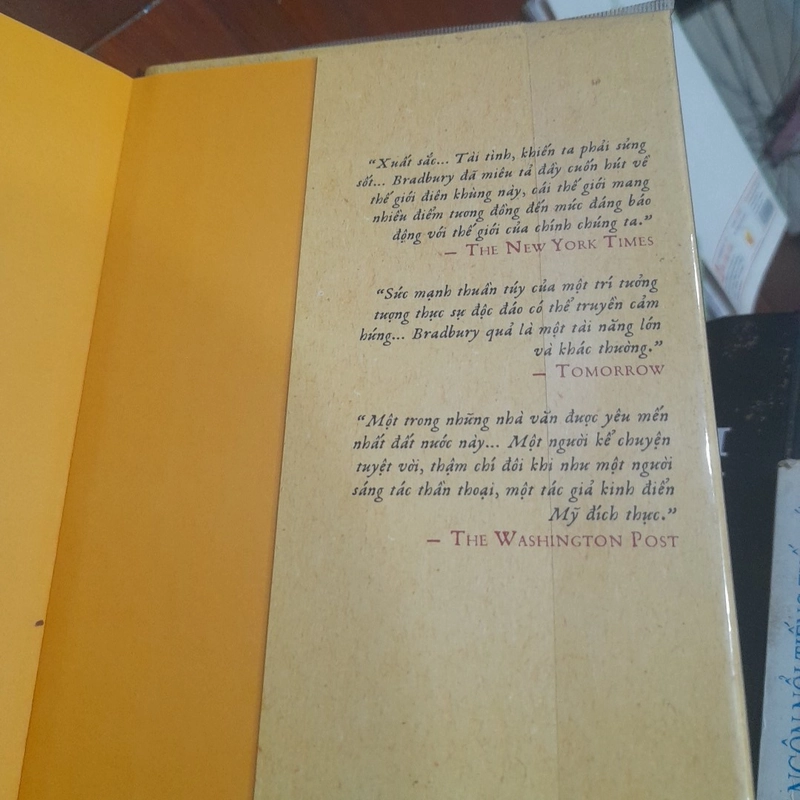 “Xuất sắc... Tài tình, khiến ta phải sủng
sốt... Bradbury đã miêu tả đầy cuốn hút về
thế giới điên khùng này, cái thế giới mang
nhiều điểm tương đồng đến mức đáng báo
động với thế giới của chính chúng ta.”
— THE NEW YORK TIMES
“Sức mạnh thuần túy của một trí tưởng
tượng thực sự độc đáo có thể truyền cảm
hứng... Bradbury quả là một tài năng lớn
và khác thường.”
— TOMORROW
“Một trong những nhà văn được yêu mến
nhất đất nước này... Một người kể chuyện
tuyệt vời, thậm chí đôi khi như một người
sáng tác thần thoại, một tác giả kinh điển
Mỹ đích thực.”
— THE WASHINGTON POST
NGÔN NỔI TIẾNG